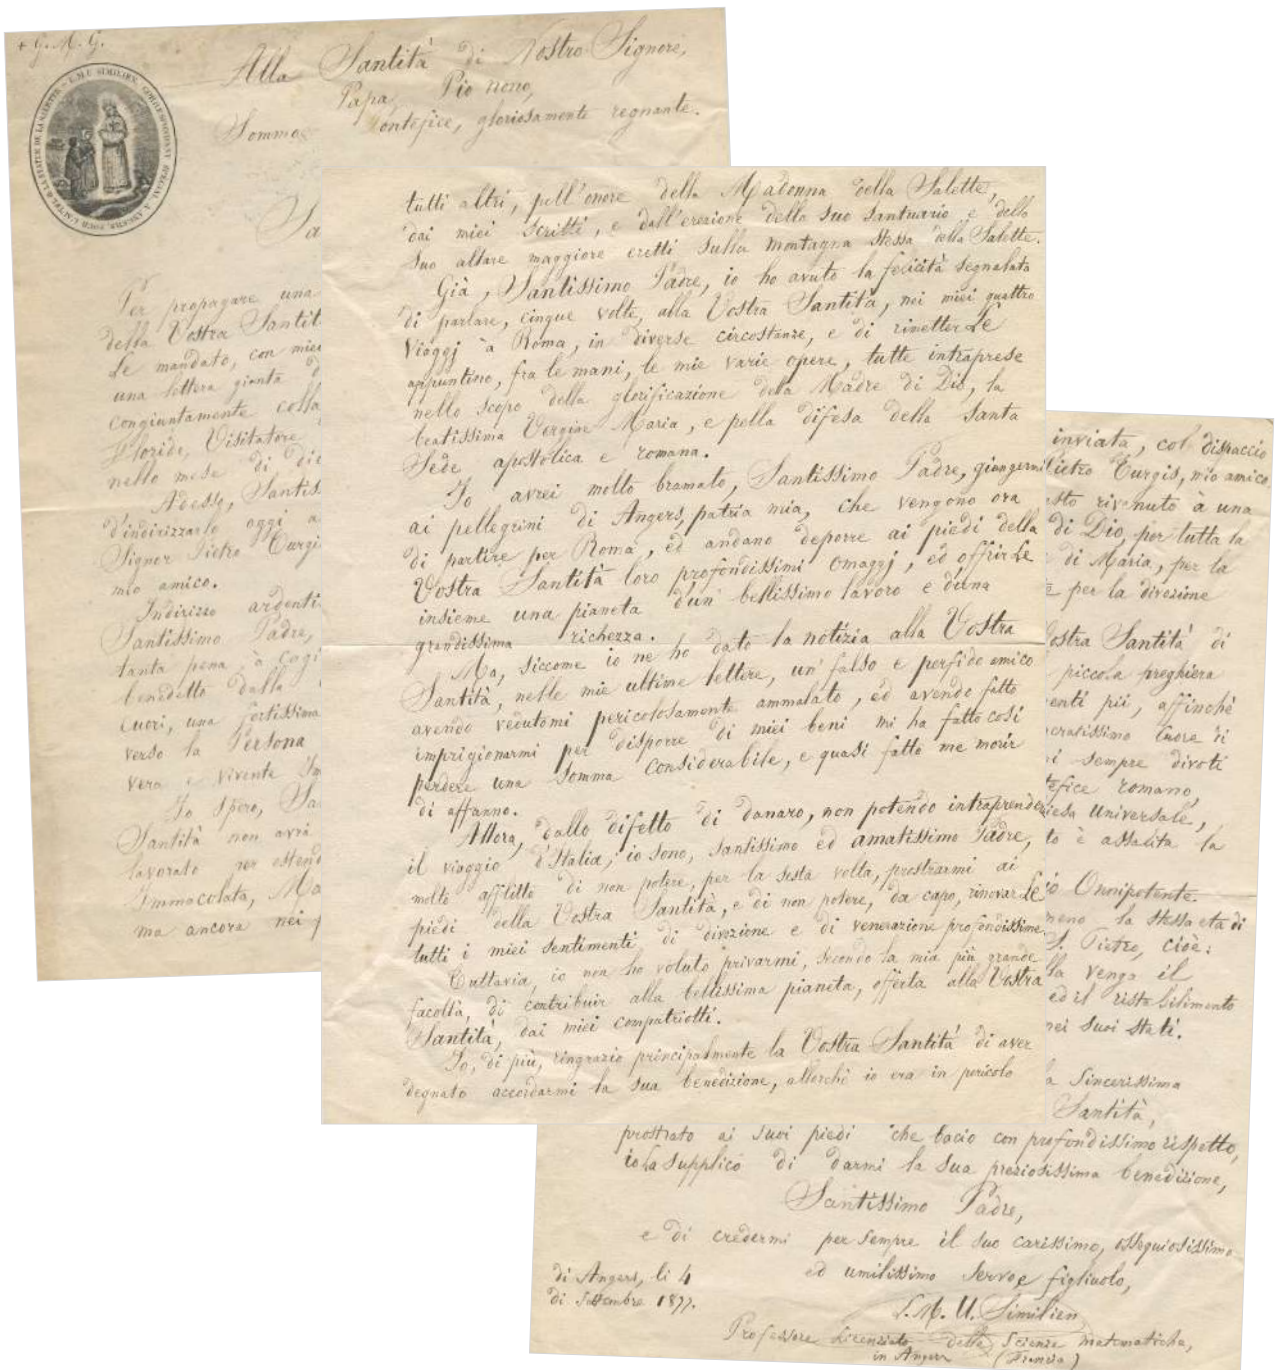 + G. M. G.
Alla Santità di Nostro Signore,
Papa, Pio nono,
Sommo Pontefice, gloriosamente regnante.
Sa
Per propagare una
della Vostra Santit
Le mandato, con miei
una lettera giunta
congiuntamente colla
Floride, Visitatore
nello mese di di
Adesso, Santis
d'indirizzarlo oggi a
Signor Pietro Turgi
mio amico.
Indirizzo ardenti
Santissimo Padre,
tanta pena à
benedetto dalla
Cuori, una fortissima
verso la Persona
vera e vivente Im
Io spero, Sa
Santità non avrà
lavorato per estend
Immacolata, Ma
ma ancora nei p
tutti altri, pell'onore della Madonna della Salette,
dai miei scritti, e dall'erezione dello suo santuario e dello
suo altare maggiore eretti sulla montagna stessa della Salette.
Già, Santissimo Padre, io ho avuto la felicità segnalata
di parlare, cinque volte, alla Vostra Santità, nei miei quattro
Viaggj à Roma, in diverse circostanze, e di rimetterLe
appuntino, fra le mani, le mie varie opere, tutte intraprese
nello scopo della glorificazione della Madre di Dio, la
beatissima Vergine Maria, e pella difesa della Santa
Sede apostolica e romana.
Io avrei molto bramato, Santissimo Padre, giungermi
ai pellegrini di Angers, patria mia, che vengono ora
di partire per Roma, ed andano deporre ai piedi della
Vostra Santità loro profondissimi omaggj, ed offrirLe
insieme una pianeta d'un' bellissimo lavoro e d'una
grandissima richezza.
Ma, siccome io ne ho dato la notizia alla Vostra
Santità, nelle mie ultime lettere, un' falso e perfido amico
avendo vedutomi pericolosamente ammalato, ed avendo fatto
imprigionarmi per disporre di miei beni mi ha fatto così
perdere una somma considerabile, e quasi fatto me morir
di affanno.
Allora, dallo difetto di danaro, non potendo intraprende
il viaggio d'Italia, io sono, santissimo ed amatissimo Padre,
molto afflitto di non potere, per la sesta volta, prostrarmi ai
piedi della Vostra Santità, e di non potere, da capo, rinovarLe
tutti i miei sentimenti di divozione e di venerazione profondissime.
Tuttavia, io non ho voluto privarmi, secondo la mia più grande
facoltà, di contribuir alla bellissima pianeta, offerta alla Vostra
Santità, dai miei compatriotti.
Io, di più, ringrazio principalmente la Vostra Santità di aver
degnato accordarmi la sua benedizione, allorchè io era in pericolo
inviata, col dispaccio
Pietro Turgis, mio amico
sto rivenuto à una
di Dio, per tutta la
di Maria, per la
e per la divozione
Vostra Santità di
piccola preghiera
enti più, affinchè
cratissimo Cuore di
i sempre divoti
tefice romano,
iesa Universale,
to è assalita la
io Onnipotente
meno la stessa età di
S. Pietro, cioè:
lla venga il
ed il ristabilimento
nei suoi stati.
a sincerissima
Santità,
prostrato ai suoi piedi che bacio con profondissimo rispetto,
io La supplico di darmi la sua preziosissima benedizione,
Santissimo Padre,
e di credermi per sempre il suo carissimo, ossequiosissimo
ed umilissimo servo e figliuolo,
di Angers, li 4
di Settembre 1877.
L. M. U. Similien
Professore Licenziato delle Scienze matematiche,
in Angers (Francia)